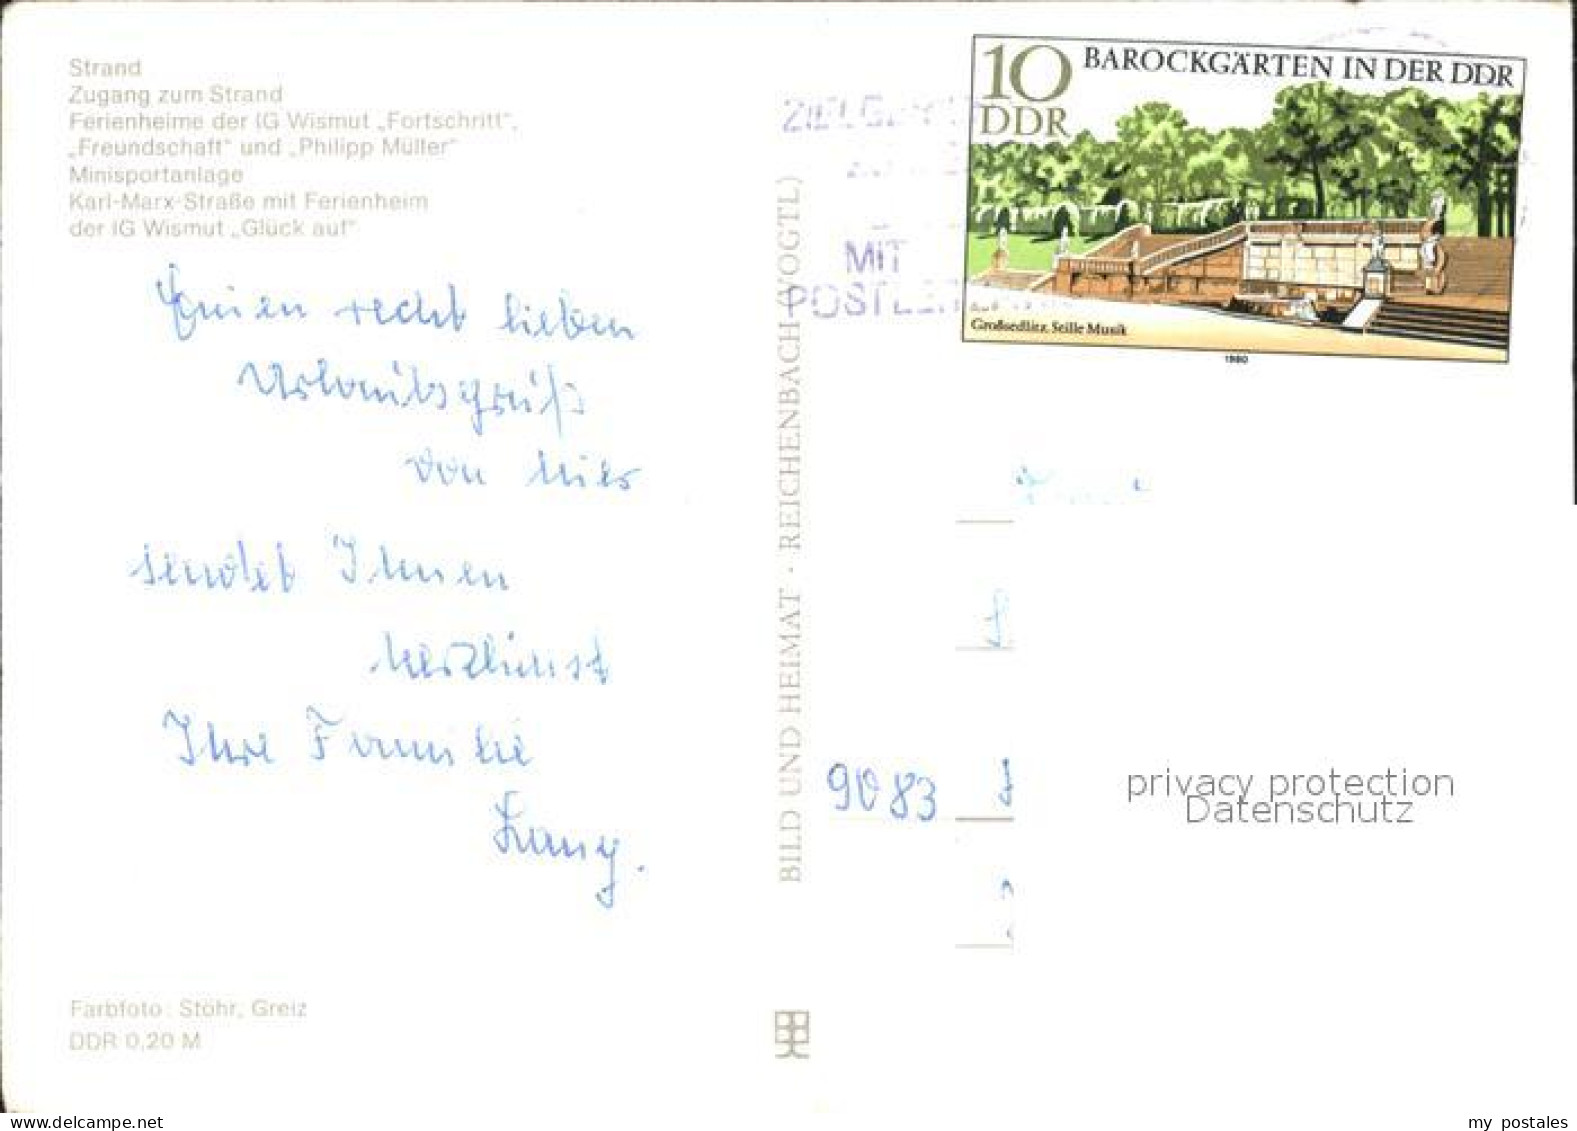 Strand
Zugang zum Strand
Ferienheime der IG Wismut „Fortschritt“,
„Freundschaft“ und „Philipp Müller“
Minisportanlage
Karl-Marx-Straße mit Ferienheim
der IG Wismut „Glück auf“
Einen recht lieben
Urlaubsgruß
von hier
sendet Ihnen
herzlichst
Ihre Familie
Lang.
Farbfoto: Stöhr, Greiz
DDR 0,20 M
BILD UND HEIMAT · REICHENBACH (VOGTL)
MIT
10
DDR
BAROCKGÄRTEN IN DER DDR
Großsedlitz, Stille Musik
1980
9083
privacy protection
Datenschutz
my postales
www.delcampe.net